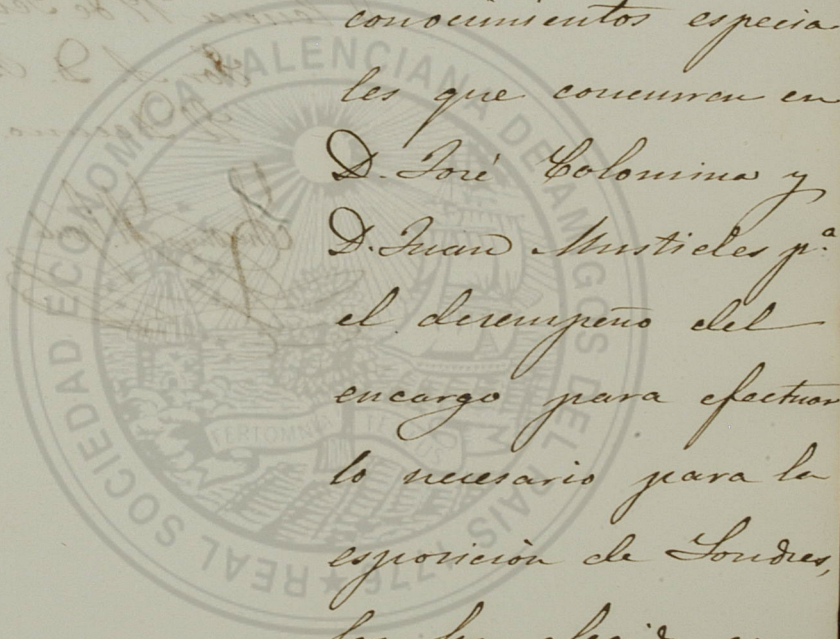 conocimientos especia
les que concurren en
D. José Colomina y
D. Juan Mustieles p.ª
el desempeño del
encargo para efectuar
lo necesario para la
esposición de Londres,
REAL SOCIEDAD ECONOMICA VALENCIANA DE AMIGOS DEL PAIS 1776
FERT OMNIA TELLUS